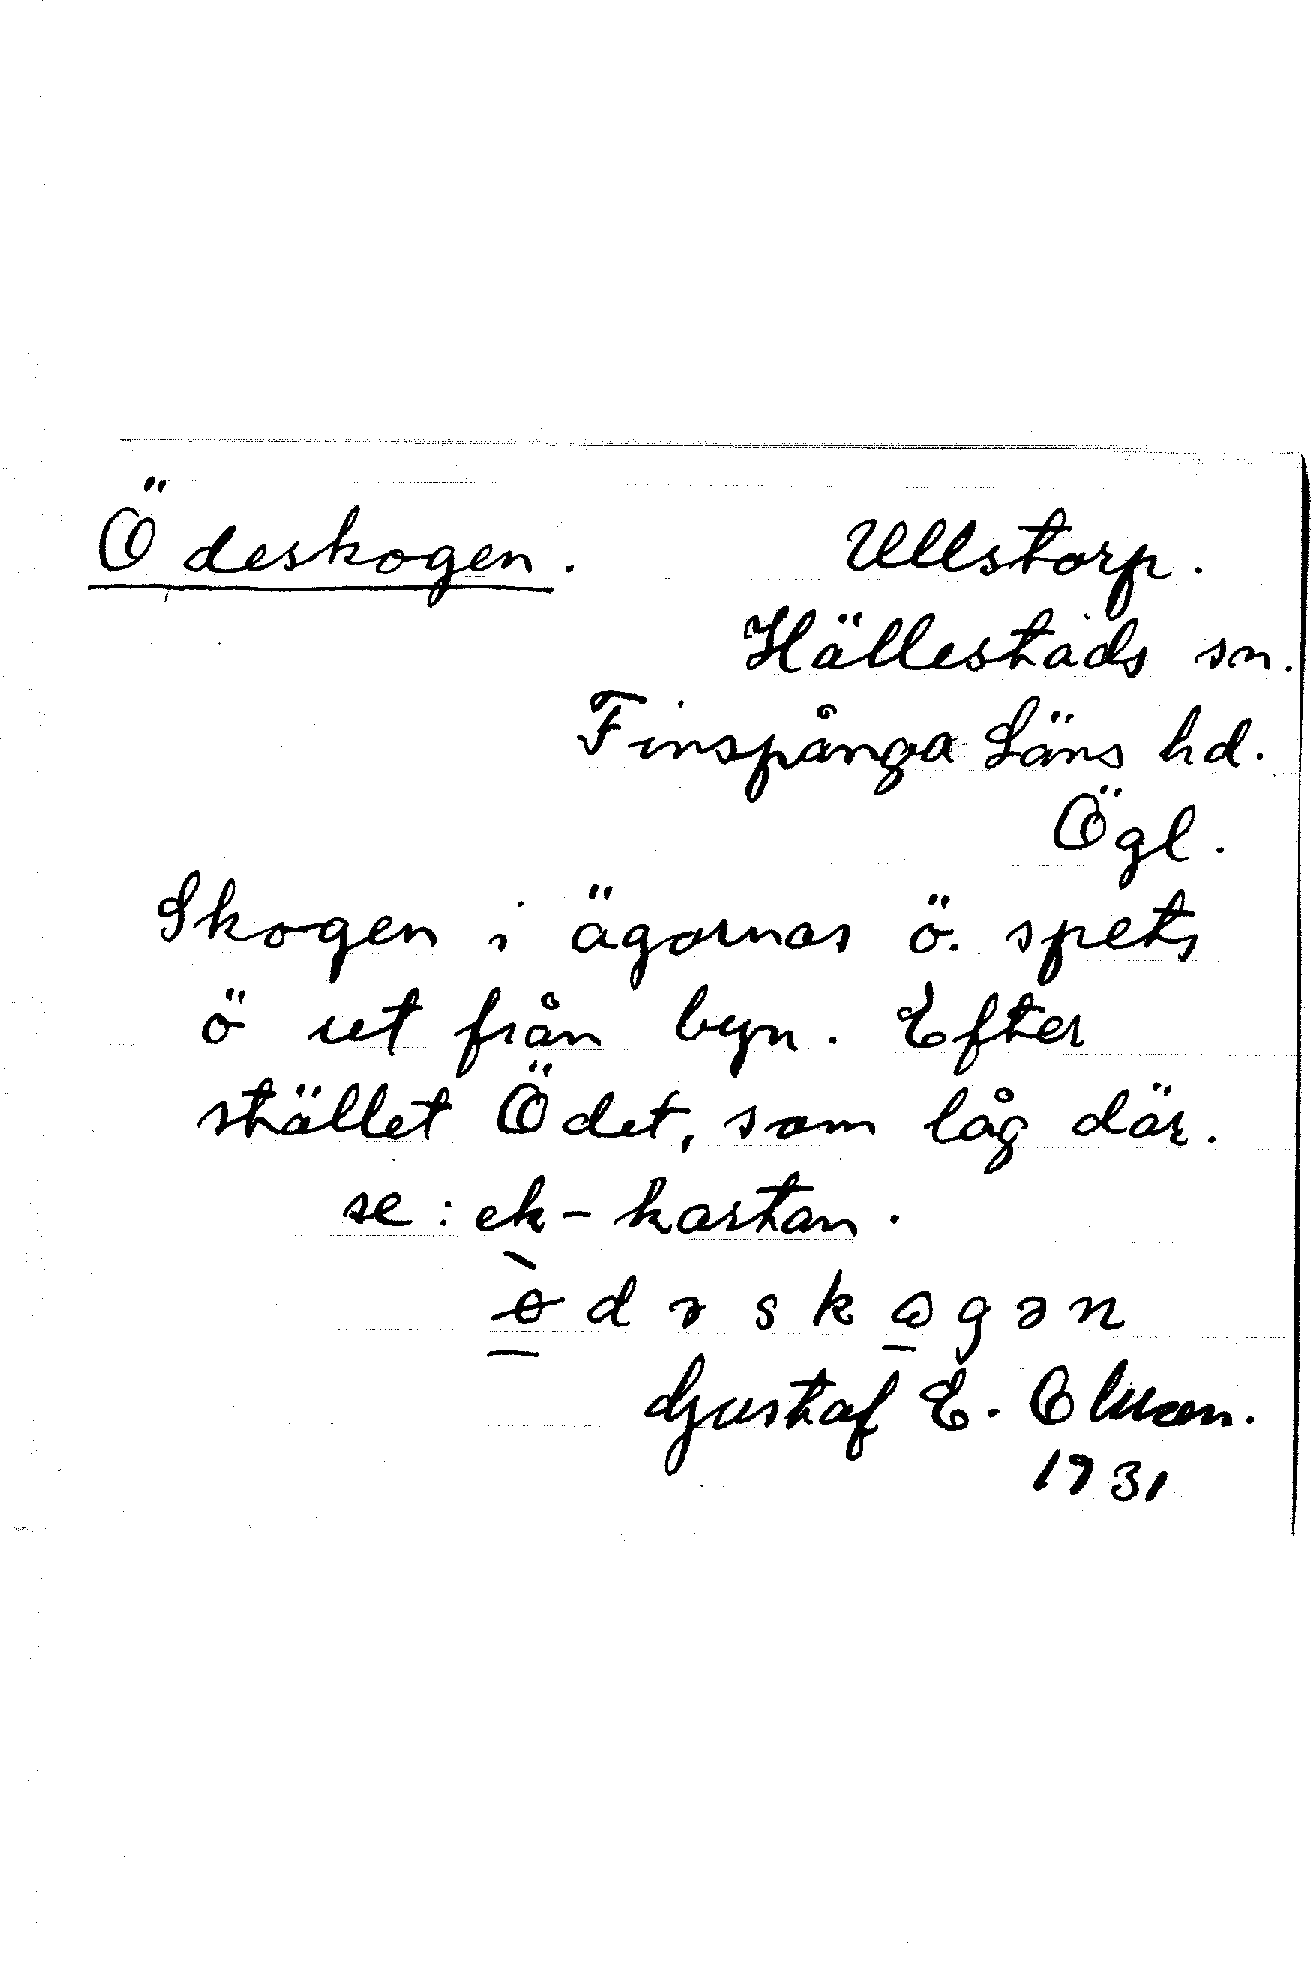 Ödeskogen. Ullstorp.
Hällestads sn.
Finspånga Läns hd.
Ögl.
Skogen i ägornas ö. spets
ö ut från byn. Efter
stället Ödet, som låg där.
se: ek-kartan.
ø̱̀dəskɷ̱gən
Gustaf E. Olsson.
1931